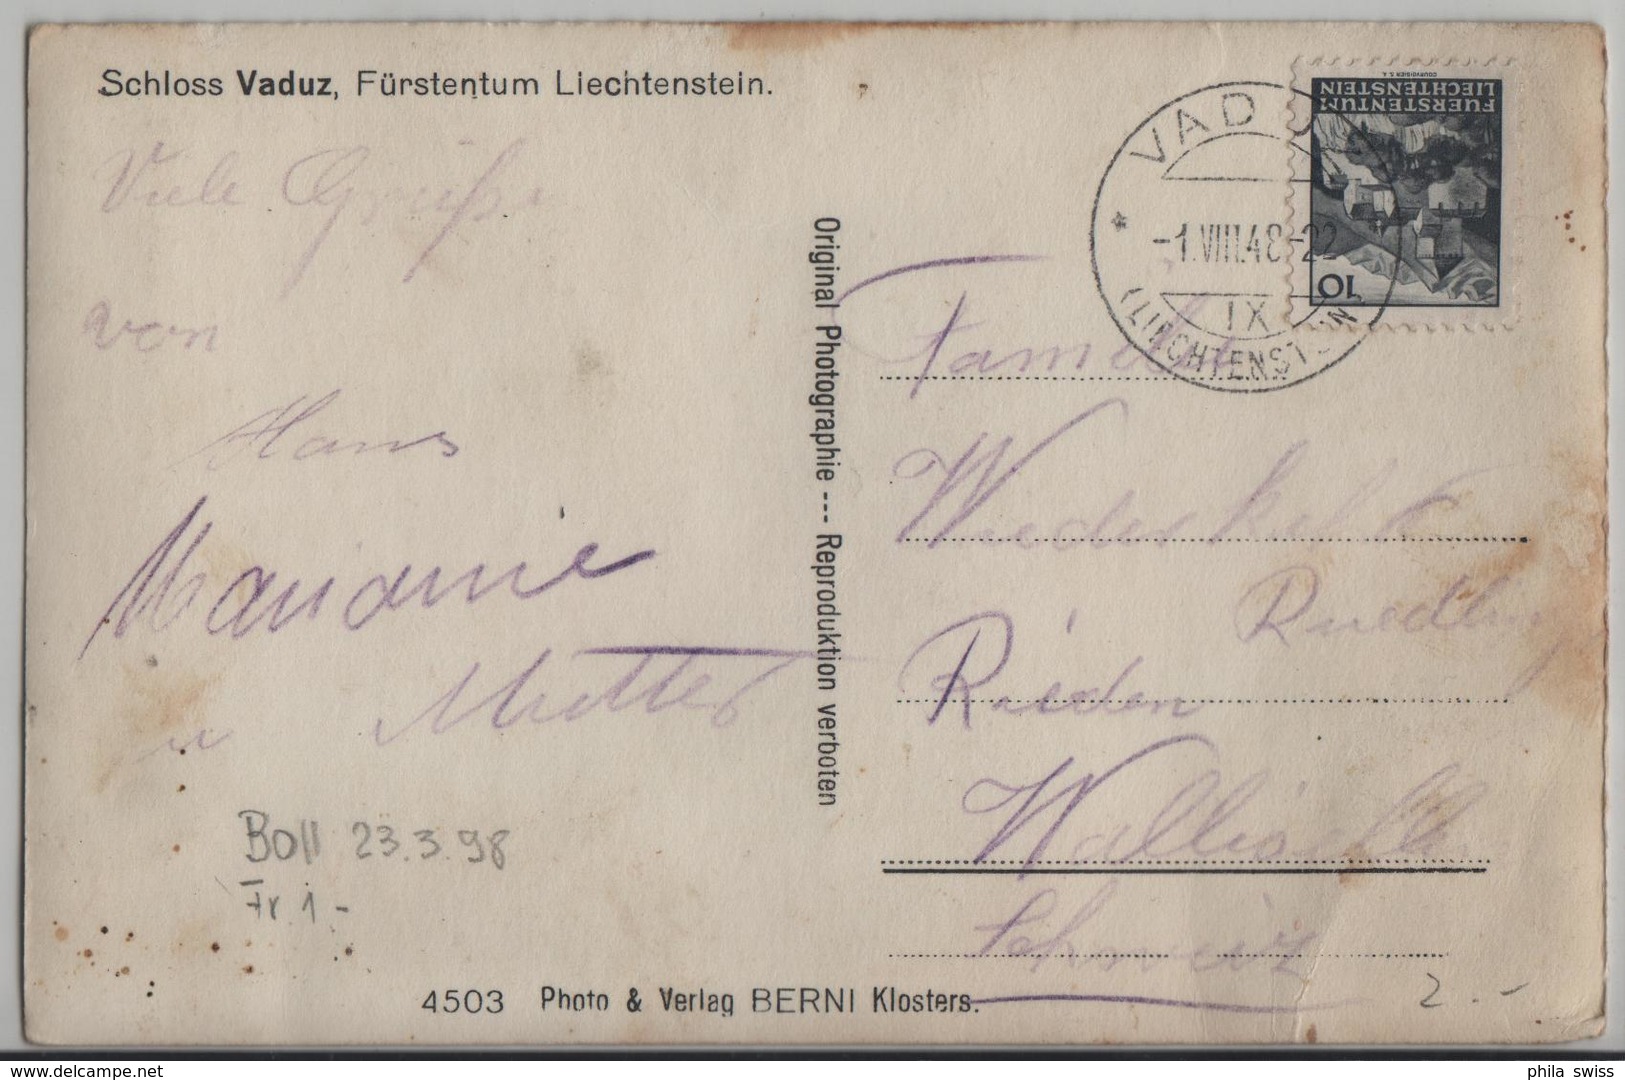 Schloss Vaduz, Fürstentum Liechtenstein.
Viele Grüsse
von
Hans
Marianne
u Mutter
Boll 23.3.98
Fr. 1.-
Original Photographie --- Reproduktion verboten
FUERSTENTUM
LIECHTENSTEIN
COURVOISIER S.A.
10
VADUZ
-1.VIII.48-22
IX
(LIECHTENSTEIN)
Familie
Wiederkehr
Ruedling
Rieden
Wallisellen
Schweiz
2.-
4503 Photo & Verlag BERNI Klosters.
delcampe.net
phila_swiss